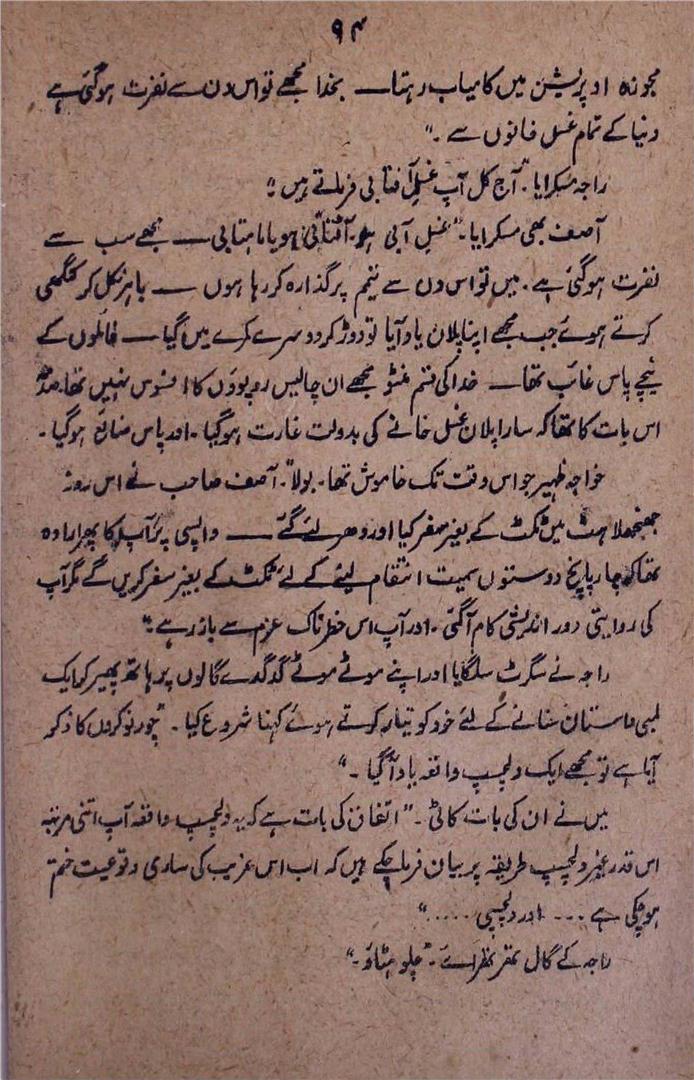 ۹۴
مجوزہ اوپریشن میں کامیاب رہتا — بخدا مجھے تو اس دن سے نفرت ہو گئی ہے
دنیا کے تمام غسل خانوں سے ۔"
راجہ مسکرایا ۔ "آج کل آپ غسلِ آفتابی فرماتے ہیں"
آصف بھی مسکرایا ۔ "غسل آبی ہو، آفتابی ہو یا ماہتابی — مجھے سب سے
نفرت ہو گئی ہے ۔ میں تو اس دن سے تیمم پر گذارہ کر رہا ہوں — باہر نکل کر کنگھی
کرتے ہوئے جب مجھے اپنا پلان یاد آیا تو دوڑ کر دوسرے کمرے میں گیا — فائلوں کے
نیچے پاس غائب تھا — خدا کی قسم منٹو مجھے ان چالیس روپوؤں کا افسوس نہیں تھا، صدمہ
اس بات کا تھا کہ سارا پلان غسل خانے کی بدولت غارت ہو گیا ۔ اور پاس ضائع ہو گیا ۔
خواجہ ظہیر جو اس وقت تک خاموش تھا ۔ بولا ۔ "آصف صاحب نے اس روز
جھنجھلاہٹ میں ٹکٹ کے بغیر سفر کیا اور دھر لئے گئے — واپسی پر آپ کا پھر ارادہ
تھا کہ چار پانچ دوستوں سمیت انتقام لینے کے لئے ٹکٹ کے بغیر سفر کریں گے مگر آپ
کی روایتی دور اندیشی کام آ گئی ۔ اور آپ اس خطرناک عزم سے باز رہے ۔"
راجہ نے سگرٹ سلگایا اور اپنے موٹے موٹے گدگدے گالوں پر ہاتھ پھیر کر ایک
لمبی داستان سنانے کے لئے خود کو تیار کرتے ہوئے کہنا شروع کیا ۔ "چور نوکروں کا ذکر
آیا ہے تو مجھے ایک دلچسپ واقعہ یاد آ گیا ۔"
میں نے ان کی بات کاٹی ۔ "اتفاق کی بات ہے کہ یہ دلچسپ واقعہ آپ اتنی مرتبہ
اس قدر غیر دلچسپ طریقہ پر بیان فرما چکے ہیں کہ اب اس غریب کی ساری وقوعیت ختم
ہو چکی ہے ۔۔۔ اور دلچسپی ....."
راجہ کے گال تھر تھرائے ۔ "چلو ہٹاؤ ۔"